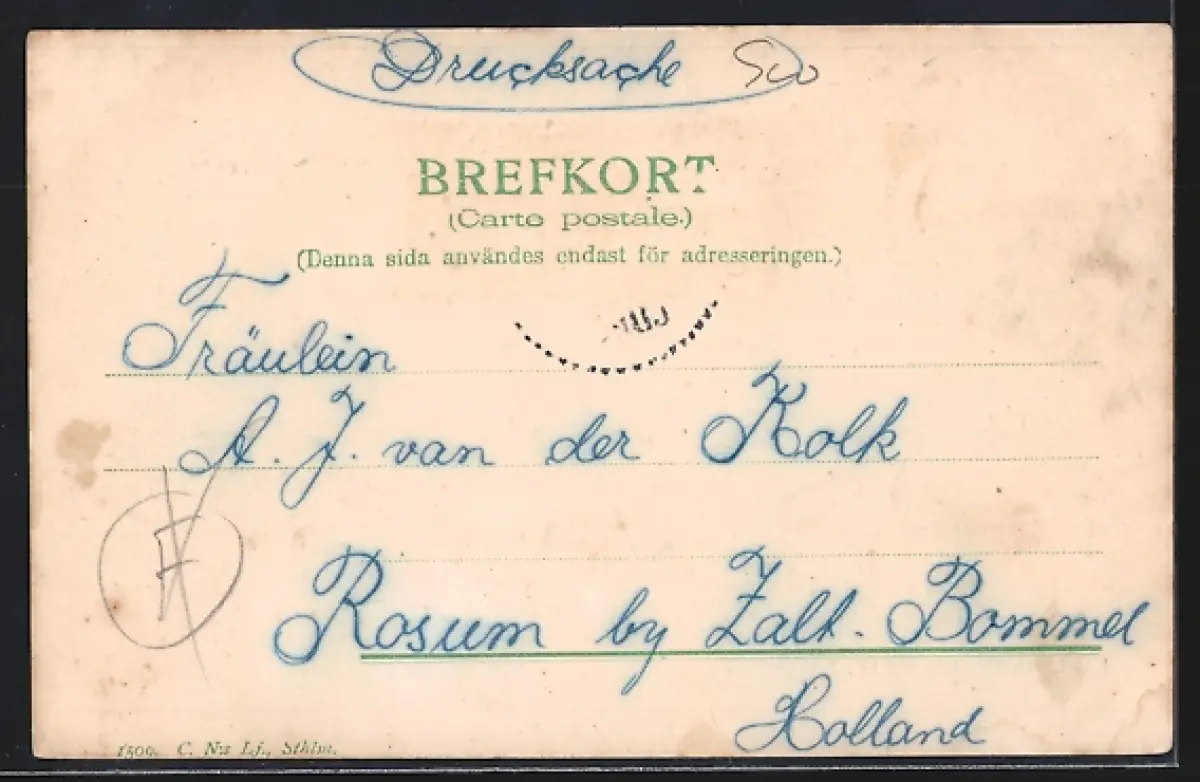 Druçksaçhe
BREFKORT
(Carte postale.)
(Denna sida användes endast för adresseringen.)
Fräulein
A. J. van der Kolk
Rosum by Zalt. Bommel
Holland
1509. C. N:s Lj., Sthlm.